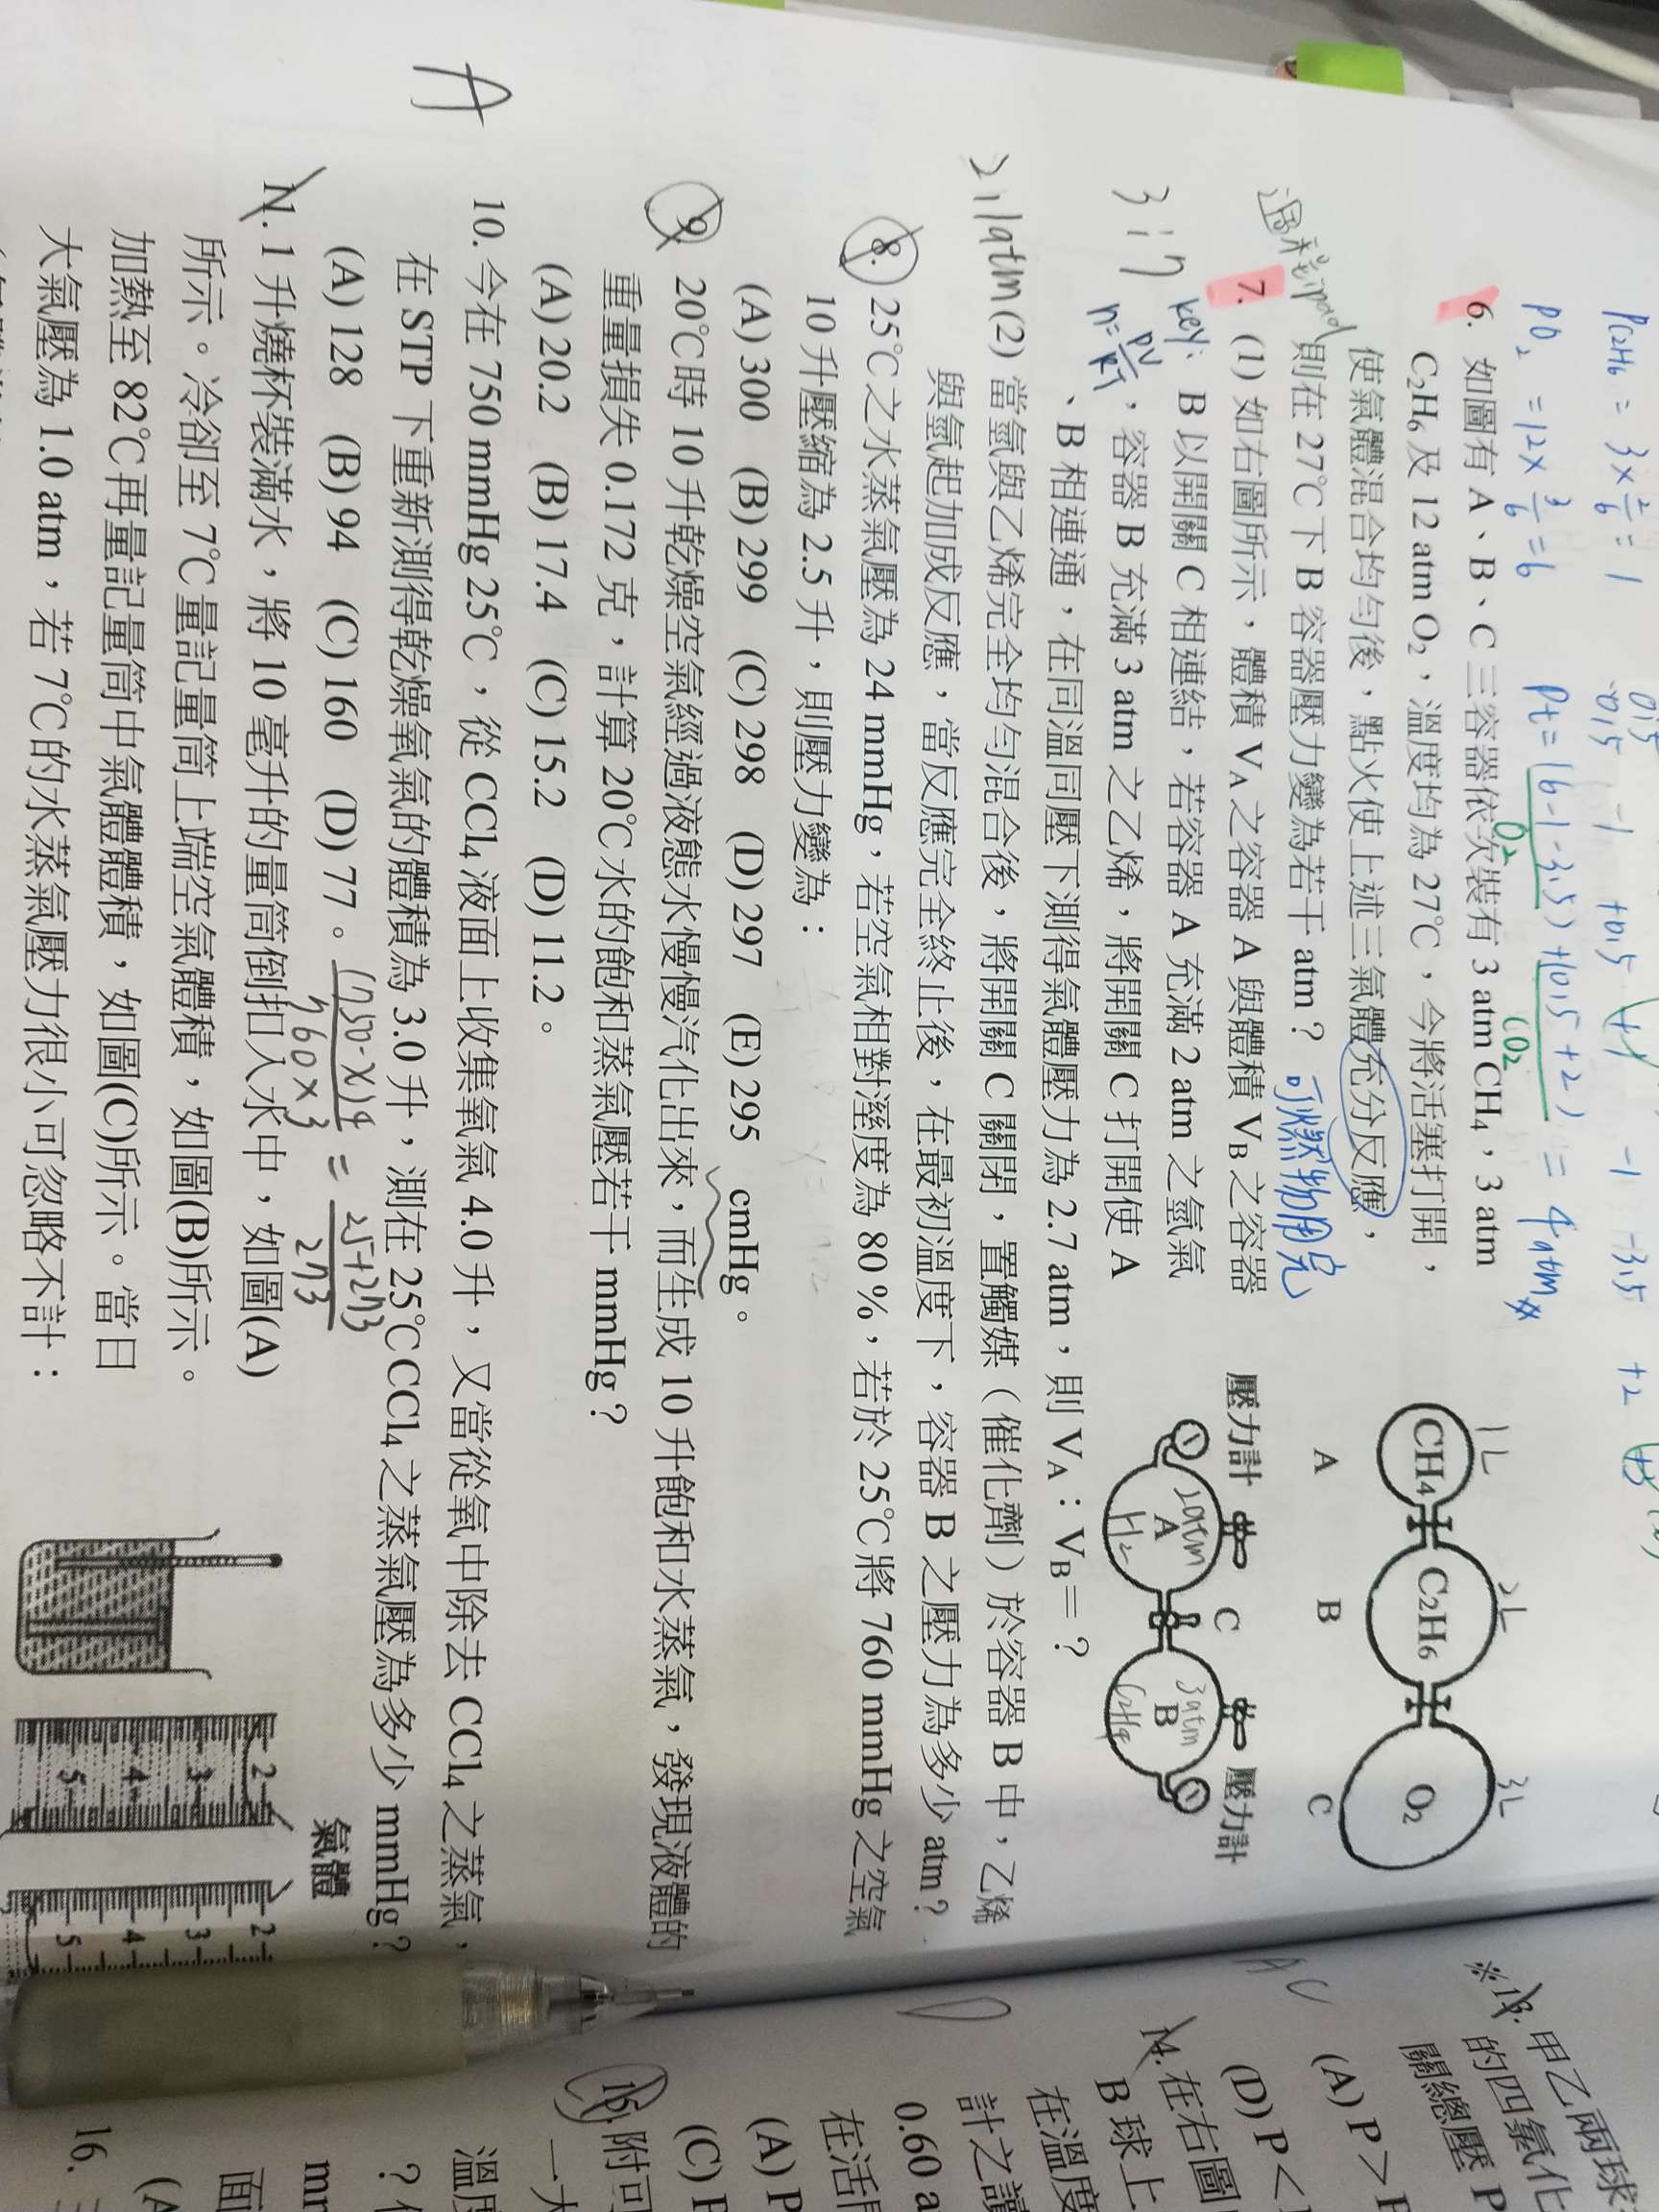 PC2H6 = 3 × 2/6 = 1
PO2 = 12 × 3/6 = 6
Pt = (6-1-3.5) + (0.5+2) = 4 atm
O2
CO2
6. 如圖有 A、B、C 三容器依次裝有 3 atm CH4，3 atm
C2H6 及 12 atm O2，溫度均為 27℃，今將活塞打開，
使氣體混合均勻後，點火使上述三氣體充分反應，
則在 27℃下 B 容器壓力變為若干 atm？
可燃物用完
1L
2L
3L
CH4
C2H6
O2
A
B
C
7. (1) 如右圖所示，體積 VA 之容器 A 與體積 VB 之容器
B 以開關 C 相連結，若容器 A 充滿 2 atm 之氫氣
，容器 B 充滿 3 atm 之乙烯，將開關 C 打開使 A
、B 相連通，在同溫同壓下測得氣體壓力為 2.7 atm，則 VA：VB＝？
3:7
key:
n = PV/RT
壓力計
C
壓力計
2atm
A
H2
3atm
B
C2H4
2.1atm
(2) 當氫與乙烯完全均勻混合後，將開關 C 關閉，置觸媒（催化劑）於容器 B 中，乙烯
與氫起加成反應，當反應完全終止後，在最初溫度下，容器 B 之壓力為多少 atm？
8. 25℃之水蒸氣壓為 24 mmHg，若空氣相對溼度為 80％，若於 25℃將 760 mmHg 之空氣
10 升壓縮為 2.5 升，則壓力變為：
(A) 300 (B) 299 (C) 298 (D) 297 (E) 295 cmHg。
9. 20℃時 10 升乾燥空氣經過液態水慢慢汽化出來，而生成 10 升飽和水蒸氣，發現液體的
重量損失 0.172 克，計算 20℃水的飽和蒸氣壓若干 mmHg？
(A) 20.2 (B) 17.4 (C) 15.2 (D) 11.2。
A
10. 今在 750 mmHg 25℃，從 CCl4 液面上收集氧氣 4.0 升，又當從氧中除去 CCl4 之蒸氣，
在 STP 下重新測得乾燥氧氣的體積為 3.0 升，測在 25℃CCl4 之蒸氣壓為多少 mmHg？
(A) 128 (B) 94 (C) 160 (D) 77。
(750-x)4 / 760×3 = 25+273 / 273
11. 1 升燒杯裝滿水，將 10 毫升的量筒倒扣入水中，如圖(A)
所示。冷卻至 7℃量記量筒上端空氣體積，如圖(B)所示。
加熱至 82℃再量記量筒中氣體體積，如圖(C)所示。當日
大氣壓為 1.0 atm，若 7℃的水蒸氣壓力很小可忽略不計：
氣體
2
3
4
5
2
3
4
5
AC
※13. 甲乙兩球
的四氯化
關總壓 P
(A) P＞
(D) P＜
D
14. 在右圖
B 球上
在溫度
計之讀
0.60 a
在活
(A) P
(C) P
15. 附
一大
溫度
mm
面
(A
16.